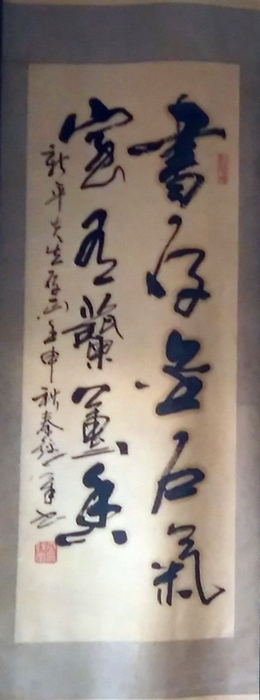 書存金石氣
室有蘭蕙香
新平先生正壬申秋書